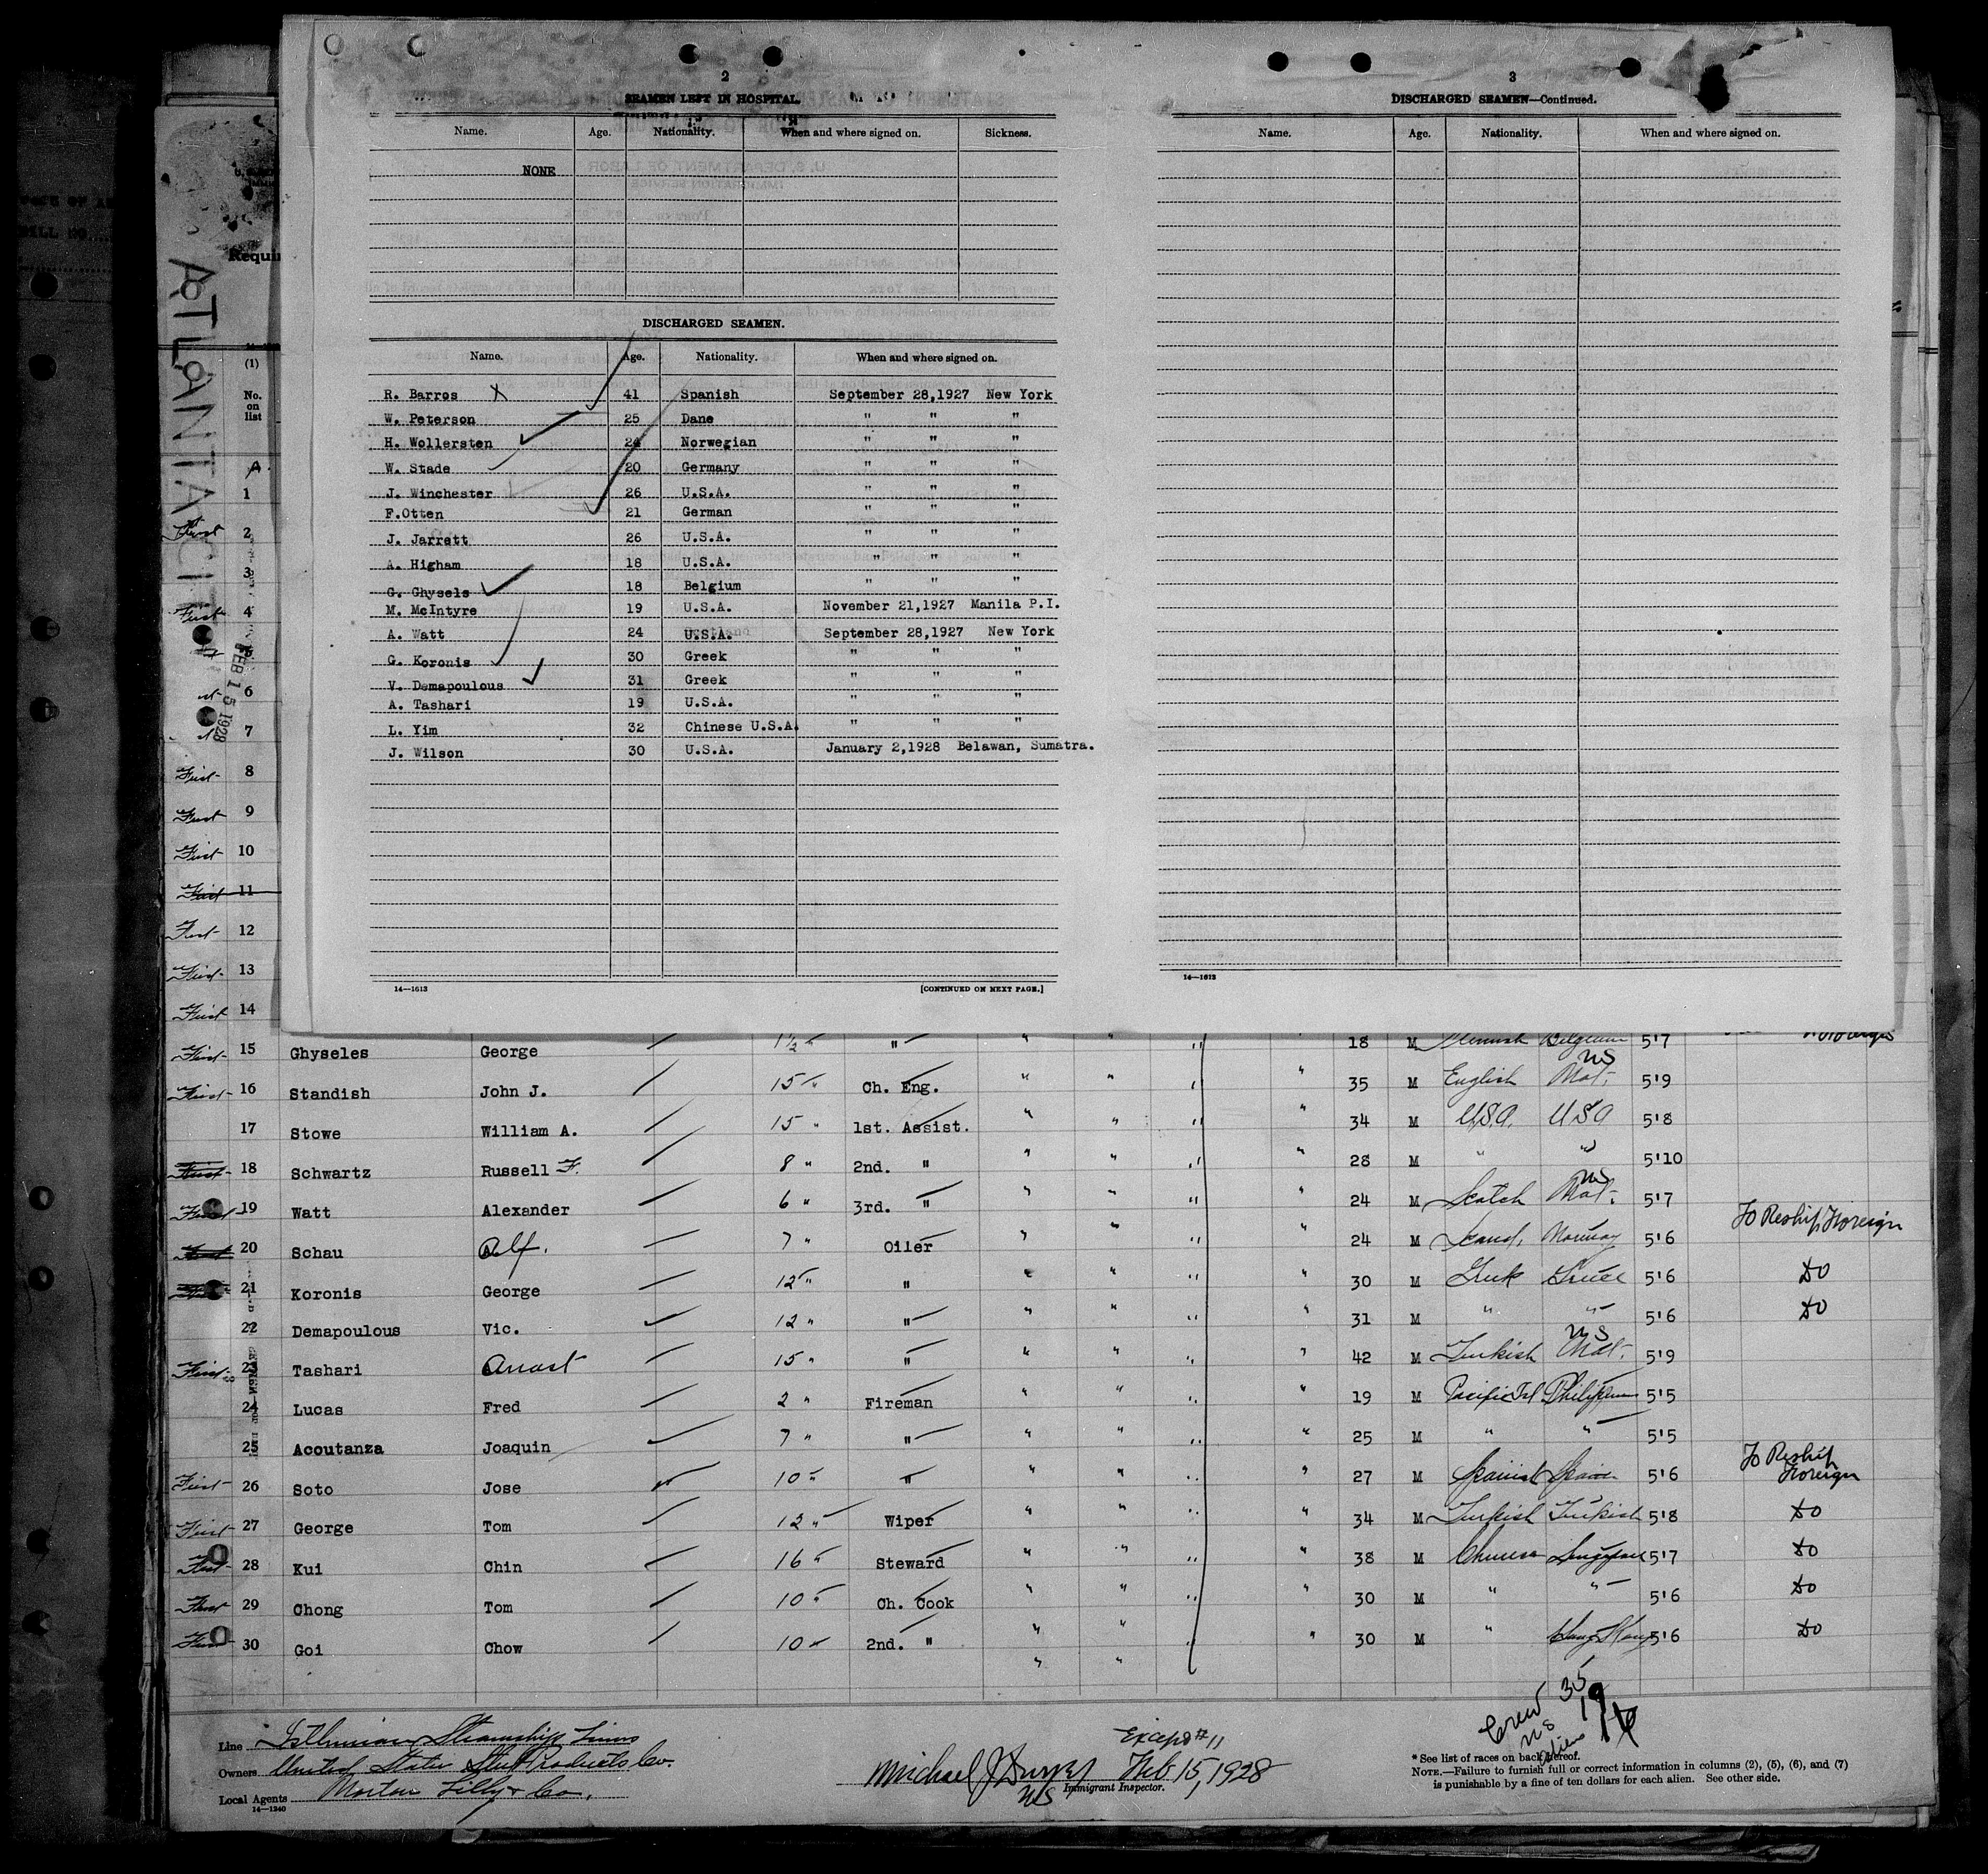 2
SEAMEN LEFT IN HOSPITAL.
Name. Age. Nationality. When and where signed on. Sickness.
NONE
DISCHARGED SEAMEN.
Name. Age. Nationality. When and where signed on.
R. Barros X 41 Spanish September 28,1927 New York
W. Peterson 25 Dane " " "
H. Wollersten 24 Norwegian " " "
W. Stade 20 Germany " " "
J. Winchester 26 U.S.A. " " "
F.Otten 21 German " " "
J. Jarrett 26 U.S.A. " " "
A. Higham 18 U.S.A. " " "
G. Ghysels 18 Belgium " " "
M. McIntyre 19 U.S.A. November 21,1927 Manila P.I.
A. Watt 24 U.S.A. September 28,1927 New York
G. Koronis 30 Greek " " "
V. Demapoulous 31 Greek " " "
A. Tashari 19 U.S.A. " " "
L. Yim 32 Chinese U.S.A. " " "
J. Wilson 30 U.S.A. January 2,1928 Belawan, Sumatra.
14—1613 [CONTINUED ON NEXT PAGE.]
3
DISCHARGED SEAMEN—Continued.
Name. Age. Nationality. When and where signed on.
14—1613
Requir
ATLANTA CIT
FEB 15 1928
(1)
No. on list
1
First 2
3
First 4
5
6
7
First 8
First 9
First 10
First 11
First 12
First 13
First 14
First 15 Ghyseles George 1½ " " " " " " 18 M Flemish Belgium 5'7
First 16 Standish John J. 15 " Ch. Eng. " " " " 35 M English US Nat. 5'9
17 Stowe William A. 15 " 1st. Assist. " " " " 34 M U.S.A. USA 5'8
First 18 Schwartz Russell F. 8 " 2nd. " " " " " 28 M " " 5'10
First 19 Watt Alexander 6 " 3rd. " " " " " 24 M Scotch US Nat. 5'7
First 20 Schau Alf. 7 " Oiler " " " " 24 M Scand. Norway 5'6 To Reship Foreign
First 21 Koronis George 12 " " " " " " 30 M Greek Greece 5'6 Do
22 Demapoulous Vic. 12 " " " " " " 31 M " " 5'6 Do
First 23 Tashari Anast 15 " " " " " " 42 M Turkish US Nat. 5'9
24 Lucas Fred 2 " Fireman " " " " 19 M Pacific Isl Philippines 5'5
25 Acoutanza Joaquin 7 " " " " " " 25 M " " 5'5
First 26 Soto Jose 10 " " " " " " 27 M Spanish Spain 5'6 To Reship Foreign
First 27 George Tom 12 " Wiper " " " " 34 M Turkish Turkish 5'8 Do
First 28 Kui Chin 16 " Steward " " " " 38 M Chinese Singapore 5'7 Do
First 29 Chong Tom 10 " Ch. Cook " " " " 30 M " " 5'6 Do
First 30 Goi Chow 10 " 2nd. " " " " " 30 M " Hong Kong 5'6 Do
Crew 35
US 19
Aliens 16
Line Isthmian Steamship Lines
Owners United States Steel Products Co.
Local Agents Norton Lilly & Co.
14—1240
Except #11
Michael J Feb 15, 1928
US Immigrant Inspector.
* See list of races on back hereof.
NOTE.—Failure to furnish full or correct information in columns (2), (5), (6), and (7)
is punishable by a fine of ten dollars for each alien. See other side.